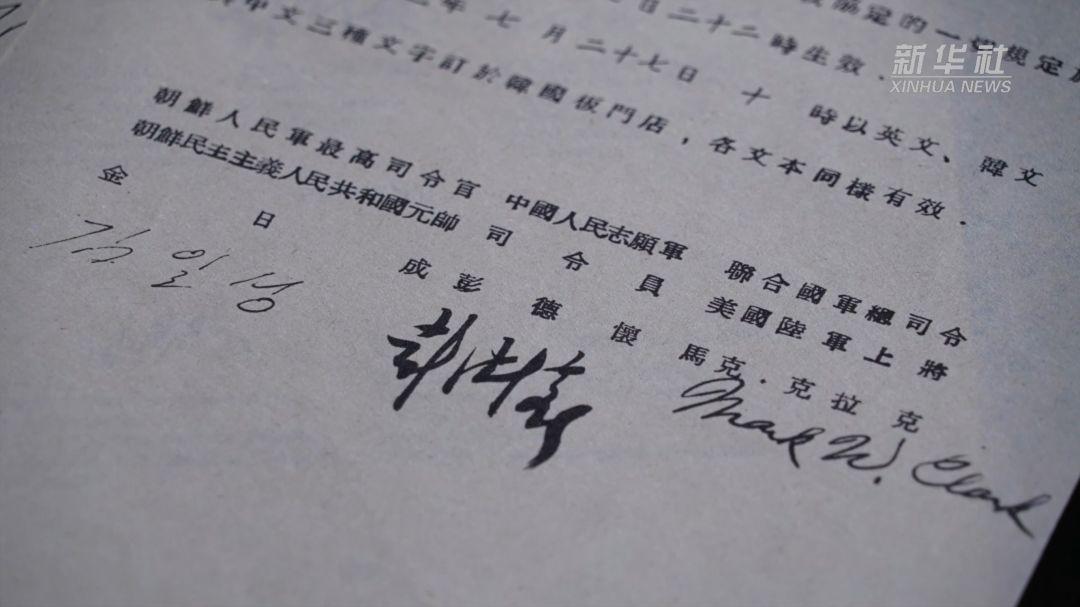 協定的一切規定
日二十二時生效．
年 七 月 二十七日 十 時以英文、韓文
中文三種文字訂於韓國板門店，各文本同樣有效．
朝鮮人民軍最高司令官
朝鮮民主主義人民共和國元帥
金 日 成
김일성
中國人民志願軍
司 令 員
彭 德 懷
彭德懷
聯合國軍總司令
美國陸軍上將
馬克．克拉克
Mark W. Clark
新华社
XINHUA NEWS